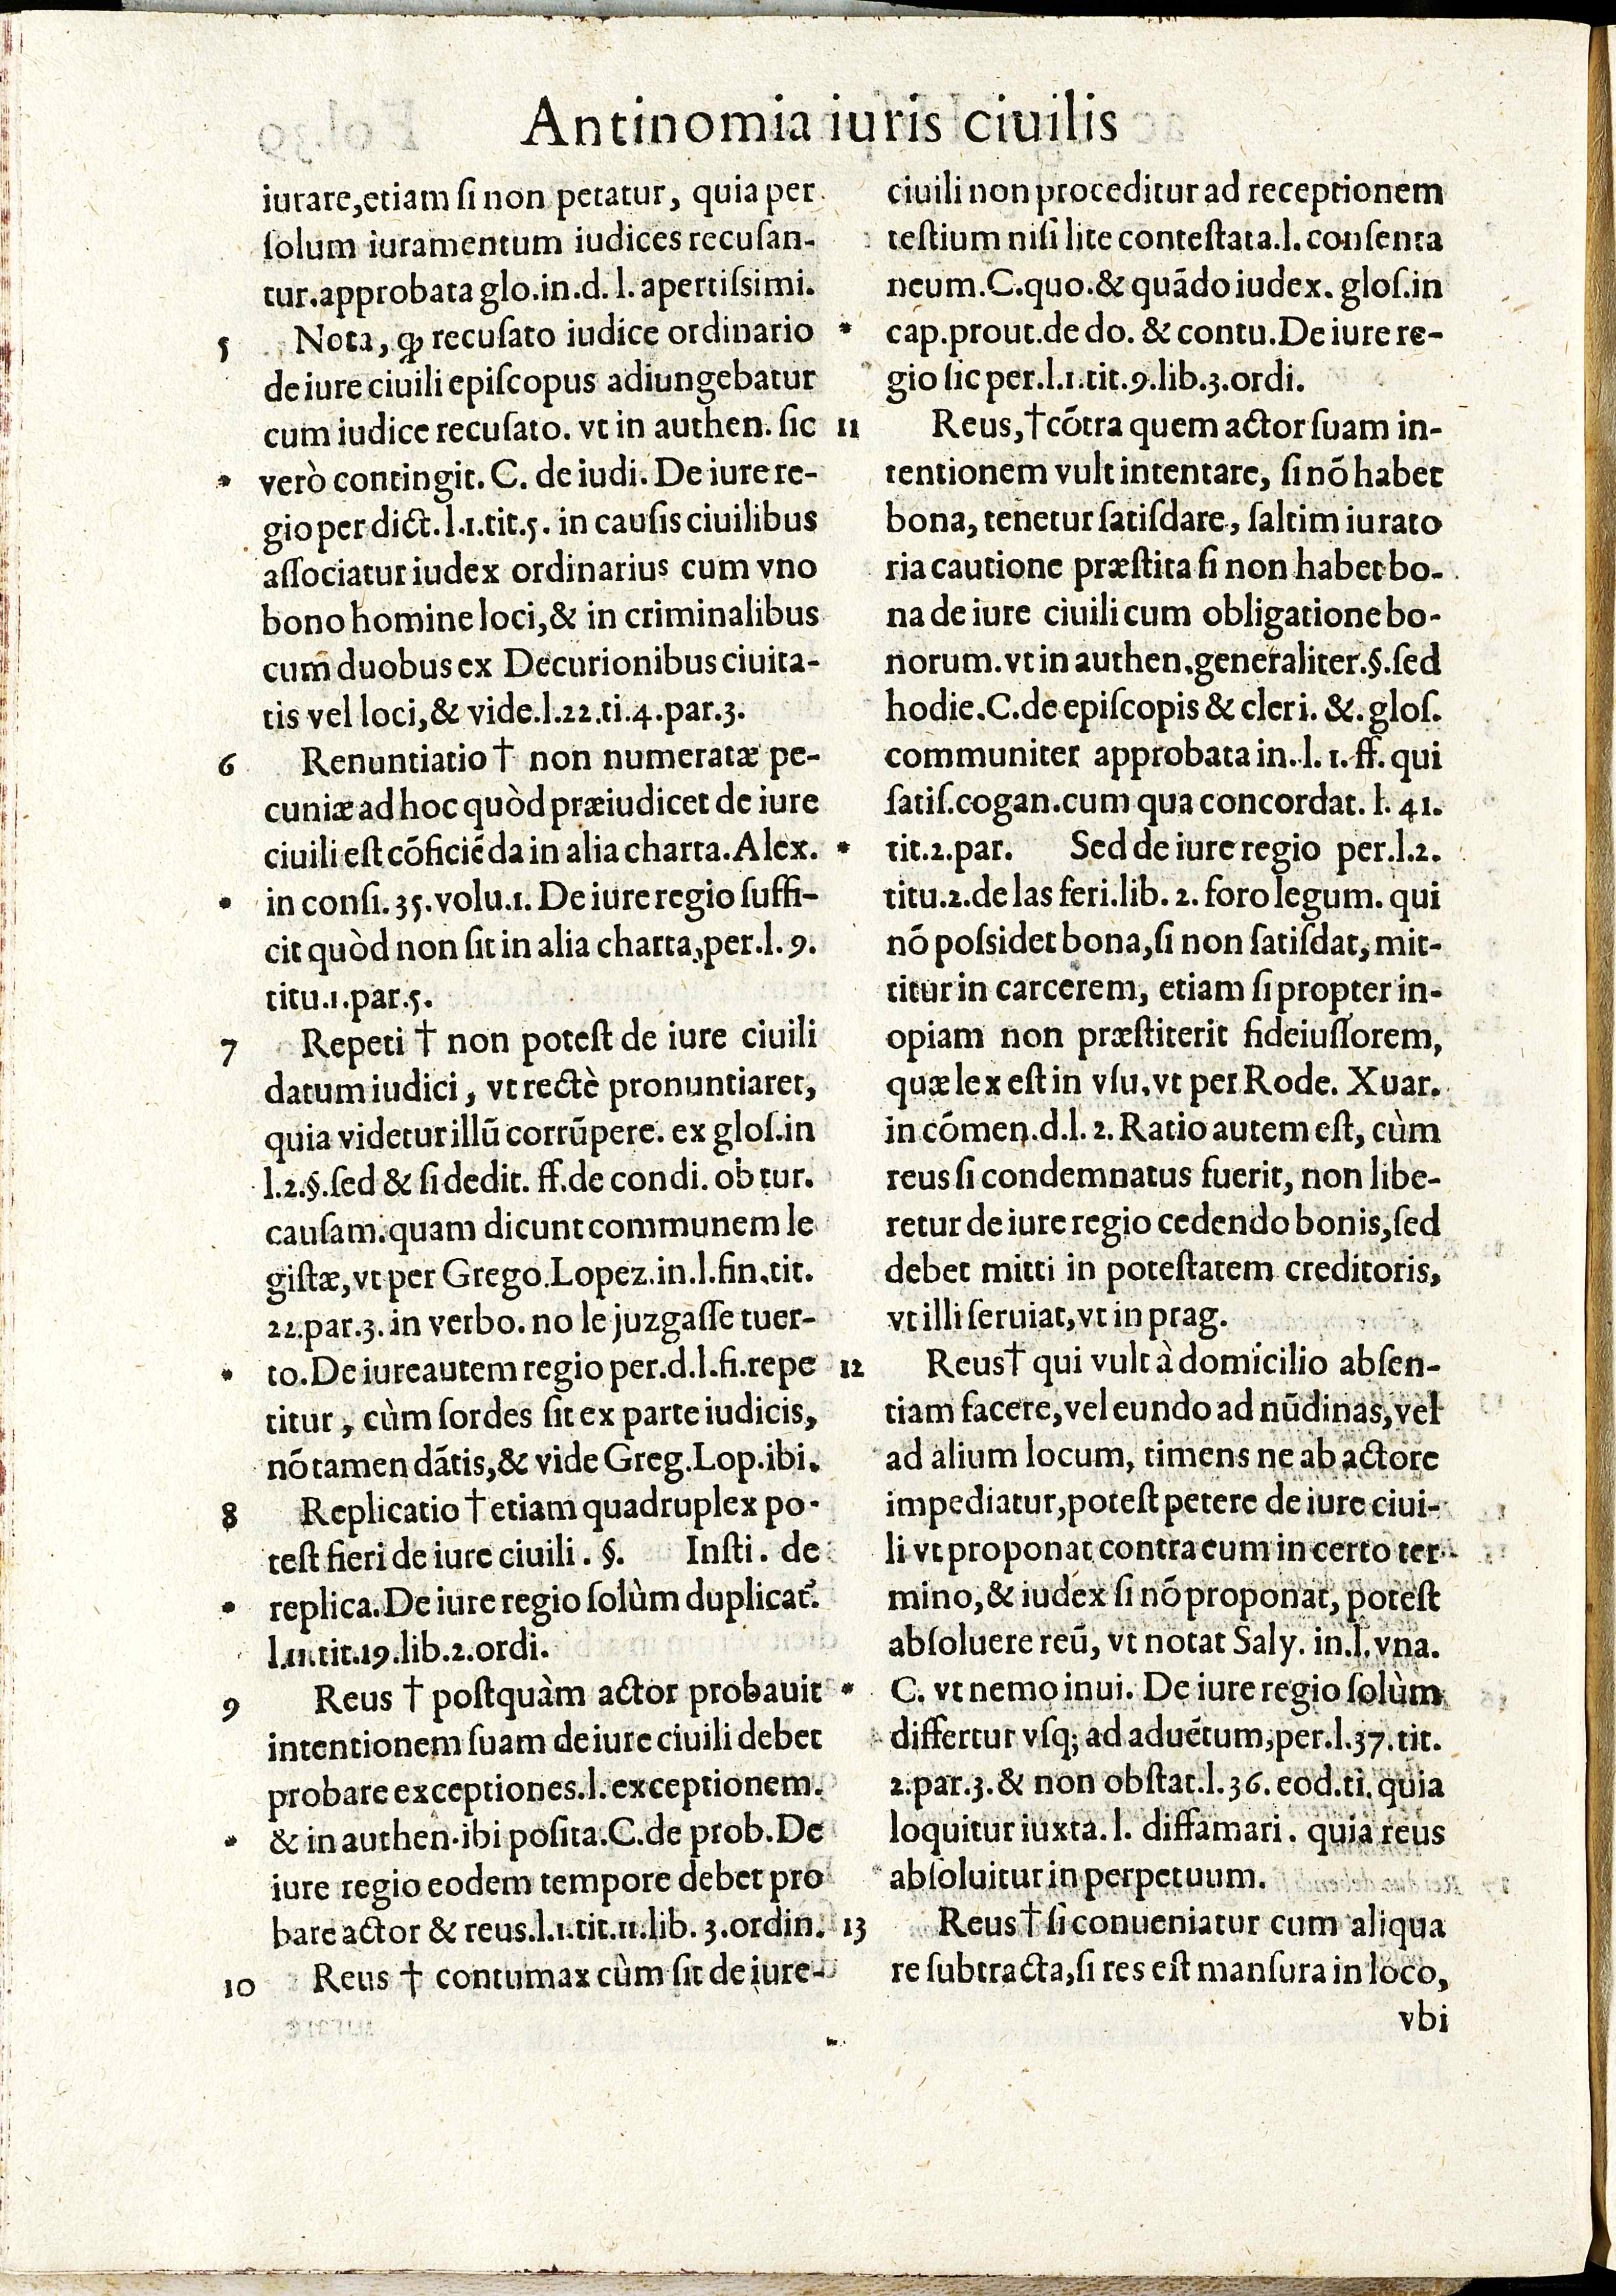 Antinomia iuris ciuilis
iurare,etiam ſi non petatur, quia per
ſolum iuramentum iudices recuſan-
tur.approbata glo.in.d.l.apertiſsimi.
5 Nota, ꝙ recuſato iudice ordinario
de iure ciuili epiſcopus adiungebatur
cum iudice recuſato. vt in authen. ſic
* verò contingit. C. de iudi. De iure re-
gio per dict.l.1.tit.5. in cauſis ciuilibus
aſſociatur iudex ordinarius cum vno
bono homine loci,& in criminalibus
cum duobus ex Decurionibus ciuita-
tis vel loci,& vide.l.22.ti.4.par.3.
6 Renuntiatio † non numeratæ pe-
cuniæ ad hoc quòd præiudicet de iure
ciuili eſt cōficiēda in alia charta.Alex.
* in conſi.35.volu.1. De iure regio ſuffi-
cit quòd non ſit in alia charta,per.l.9.
titu.1.par.5.
7 Repeti † non poteſt de iure ciuili
datum iudici, vt rectè pronuntiaret,
quia videtur illū corrūpere. ex gloſ.in
l.2.§.ſed & ſi dedit. ff.de condi. ob tur.
cauſam.quam dicunt communem le
giſtæ,vt per Grego.Lopez.in.l.fin.tit.
22.par.3. in verbo. no le juzgaſſe tuer-
* to.De iure autem regio per.d.l.fi.repe
titur, cùm ſordes ſit ex parte iudicis,
nō tamen dātis,& vide Greg.Lop.ibi.
8 Replicatio † etiam quadruplex po-
teſt fieri de iure ciuili. §. Inſti. de
* replica.De iure regio ſolùm duplicat᷑.
l.11.tit.19.lib.2.ordi.
9 Reus † poſtquàm actor probauit
intentionem ſuam de iure ciuili debet
probare exceptiones.l.exceptionem.
* & in authen.ibi poſita.C.de prob.De
iure regio eodem tempore debet pro
bare actor & reus.l.1.tit.11.lib.3.ordin.
10 Reus † contumax cùm ſit de iure-
ciuili non proceditur ad receptionem
teſtium niſi lite conteſtata.l. conſenta
neum.C.quo.& quādo iudex. gloſ.in
* cap.prout.de do. & contu.De iure re-
gio ſic per.l.1.tit.9.lib.3.ordi.
11 Reus,† cōtra quem actor ſuam in-
tentionem vult intentare, ſi nō habet
bona, tenetur ſatiſdare, ſaltim iurato
ria cautione præſtita ſi non habet bo-
na de iure ciuili cum obligatione bo-
norum.vt in authen.generaliter.§.ſed
hodie.C.de epiſcopis & cleri. &.gloſ.
communiter approbata in.l.1.ff. qui
ſatiſ.cogan.cum qua concordat. l. 41.
* tit.2.par. Sed de iure regio per.l.2.
titu.2.de las feri.lib.2. foro legum. qui
nō poſsidet bona,ſi non ſatiſdat, mit-
titur in carcerem, etiam ſi propter in-
opiam non præſtiterit fideiuſſorem,
quæ lex eſt in vſu,vt per Rode. Xuar.
in cōmen.d.l.2. Ratio autem eſt, cùm
reus ſi condemnatus fuerit, non libe-
retur de iure regio cedendo bonis,ſed
debet mitti in poteſtatem creditoris,
vt illi ſeruiat,vt in prag.
12 Reus† qui vult à domicilio abſen-
tiam facere,vel eundo ad nūdinas,vel
ad alium locum, timens ne ab actore
impediatur,poteſt petere de iure ciui-
li vt proponat contra eum in certo ter-
mino,& iudex ſi nō proponat, poteſt
abſoluere reū, vt notat Saly. in.l.vna.
* C. vt nemo inui. De iure regio ſolùm
differtur vſq; ad aduētum,per.l.37.tit.
2.par.3.& non obſtat.l.36.eod.ti.quia
loquitur iuxta.l. diffamari. quia reus
abſoluitur in perpetuum.
13 Reus† ſi conueniatur cum aliqua
re ſubtracta,ſi res eſt manſura in loco,
vbi